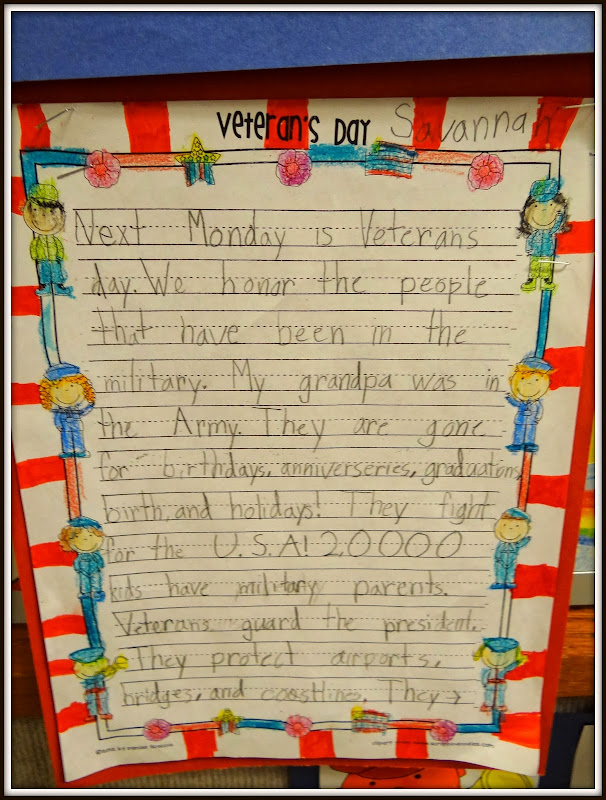 Veteran's Day Savannah
Next Monday is Veterans
day. We honor the people
that have been in the
military. My grandpa was in
the Army. They are gone
for birthdays, anniverseries, graduations,
birth, and holidays! They fight
for the U.S.A! 20000
kids have military parents.
Veterans guard the president.
They protect airports,
bridges, and coastlines. They →